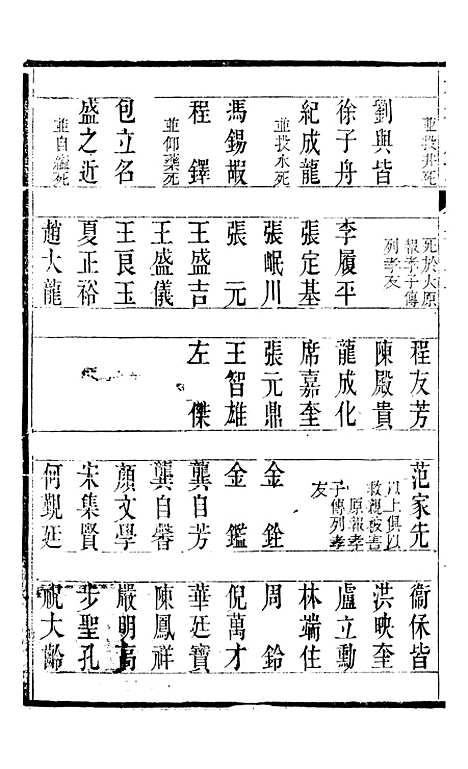 並投井死
劉與皆
徐子舟
紀成龍
並投水死
馮錫嘏
程鐸
並仰藥死
包立名
盛之近
並自縊死
死於大原
報孝子傳
列孝友
李履平
張定基
張岷川
張元
王盛吉
王盛儀
王良玉
夏正裕
趙大龍
程友芳
陳殿貴
龍成化
席嘉奎
張元鼎
王智雄
左傑
范家先
以上俱以
救親被害
原報孝
子傳列孝
友
金銓
金鑑
龔自芳
龔自馨
顏文學
宋集賢
何覲廷
衞保皆
洪映奎
盧立勳
林端住
周鈴
倪萬才
華廷寶
陳鳳祥
嚴明高
步聖孔
祝大齡